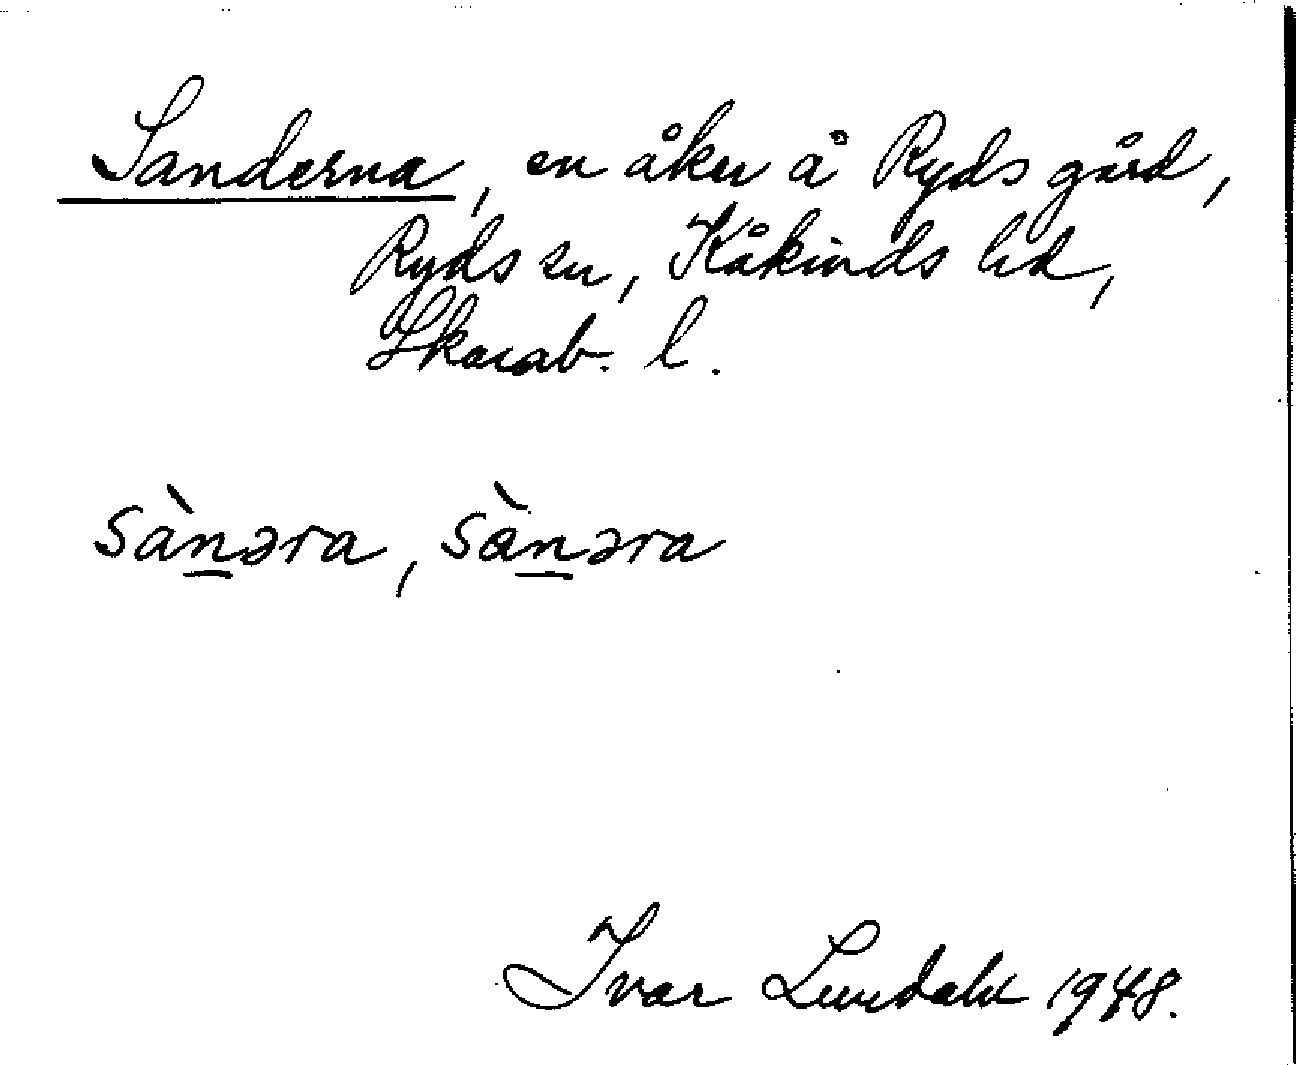 Sanderna, en åker å Ryds gård,
Ryds sn, Kåkinds hd,
Skarab. l.
sànəra, sànəra
Ivar Lundahl 1948.